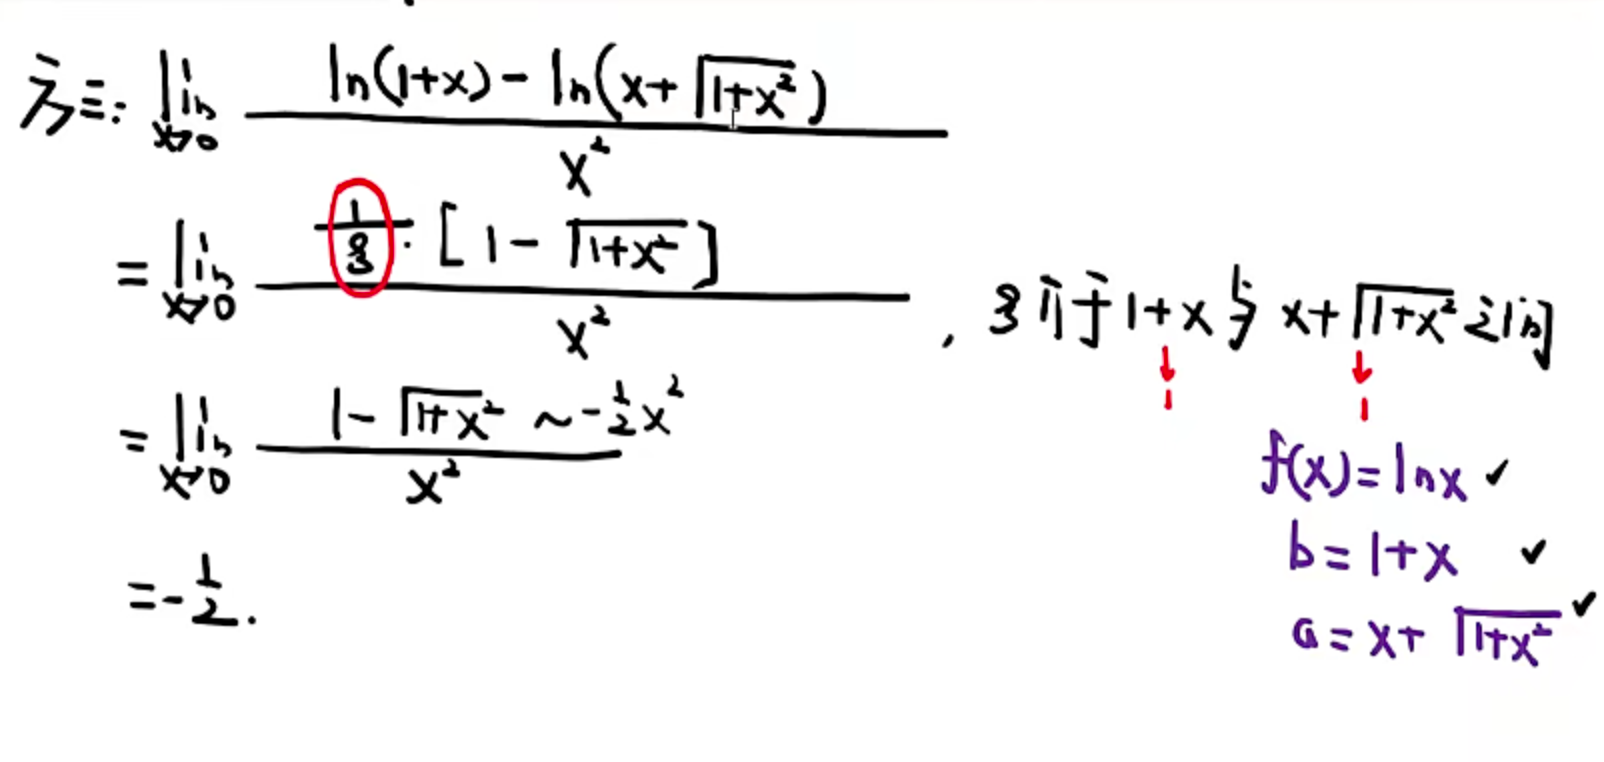 方三: lim x→0 (ln(1+x) - ln(x+√(1+x²))) / x²
= lim x→0 (1/ξ · [1 - √(1+x²)]) / x² , ξ介于1+x与x+√(1+x²)之间
↓ ↓
1 1
= lim x→0 (1 - √(1+x²) ~ -1/2 x²) / x²
f(x) = lnx ✓
b = 1+x ✓
= -1/2.
a = x+ √(1+x²) ✓